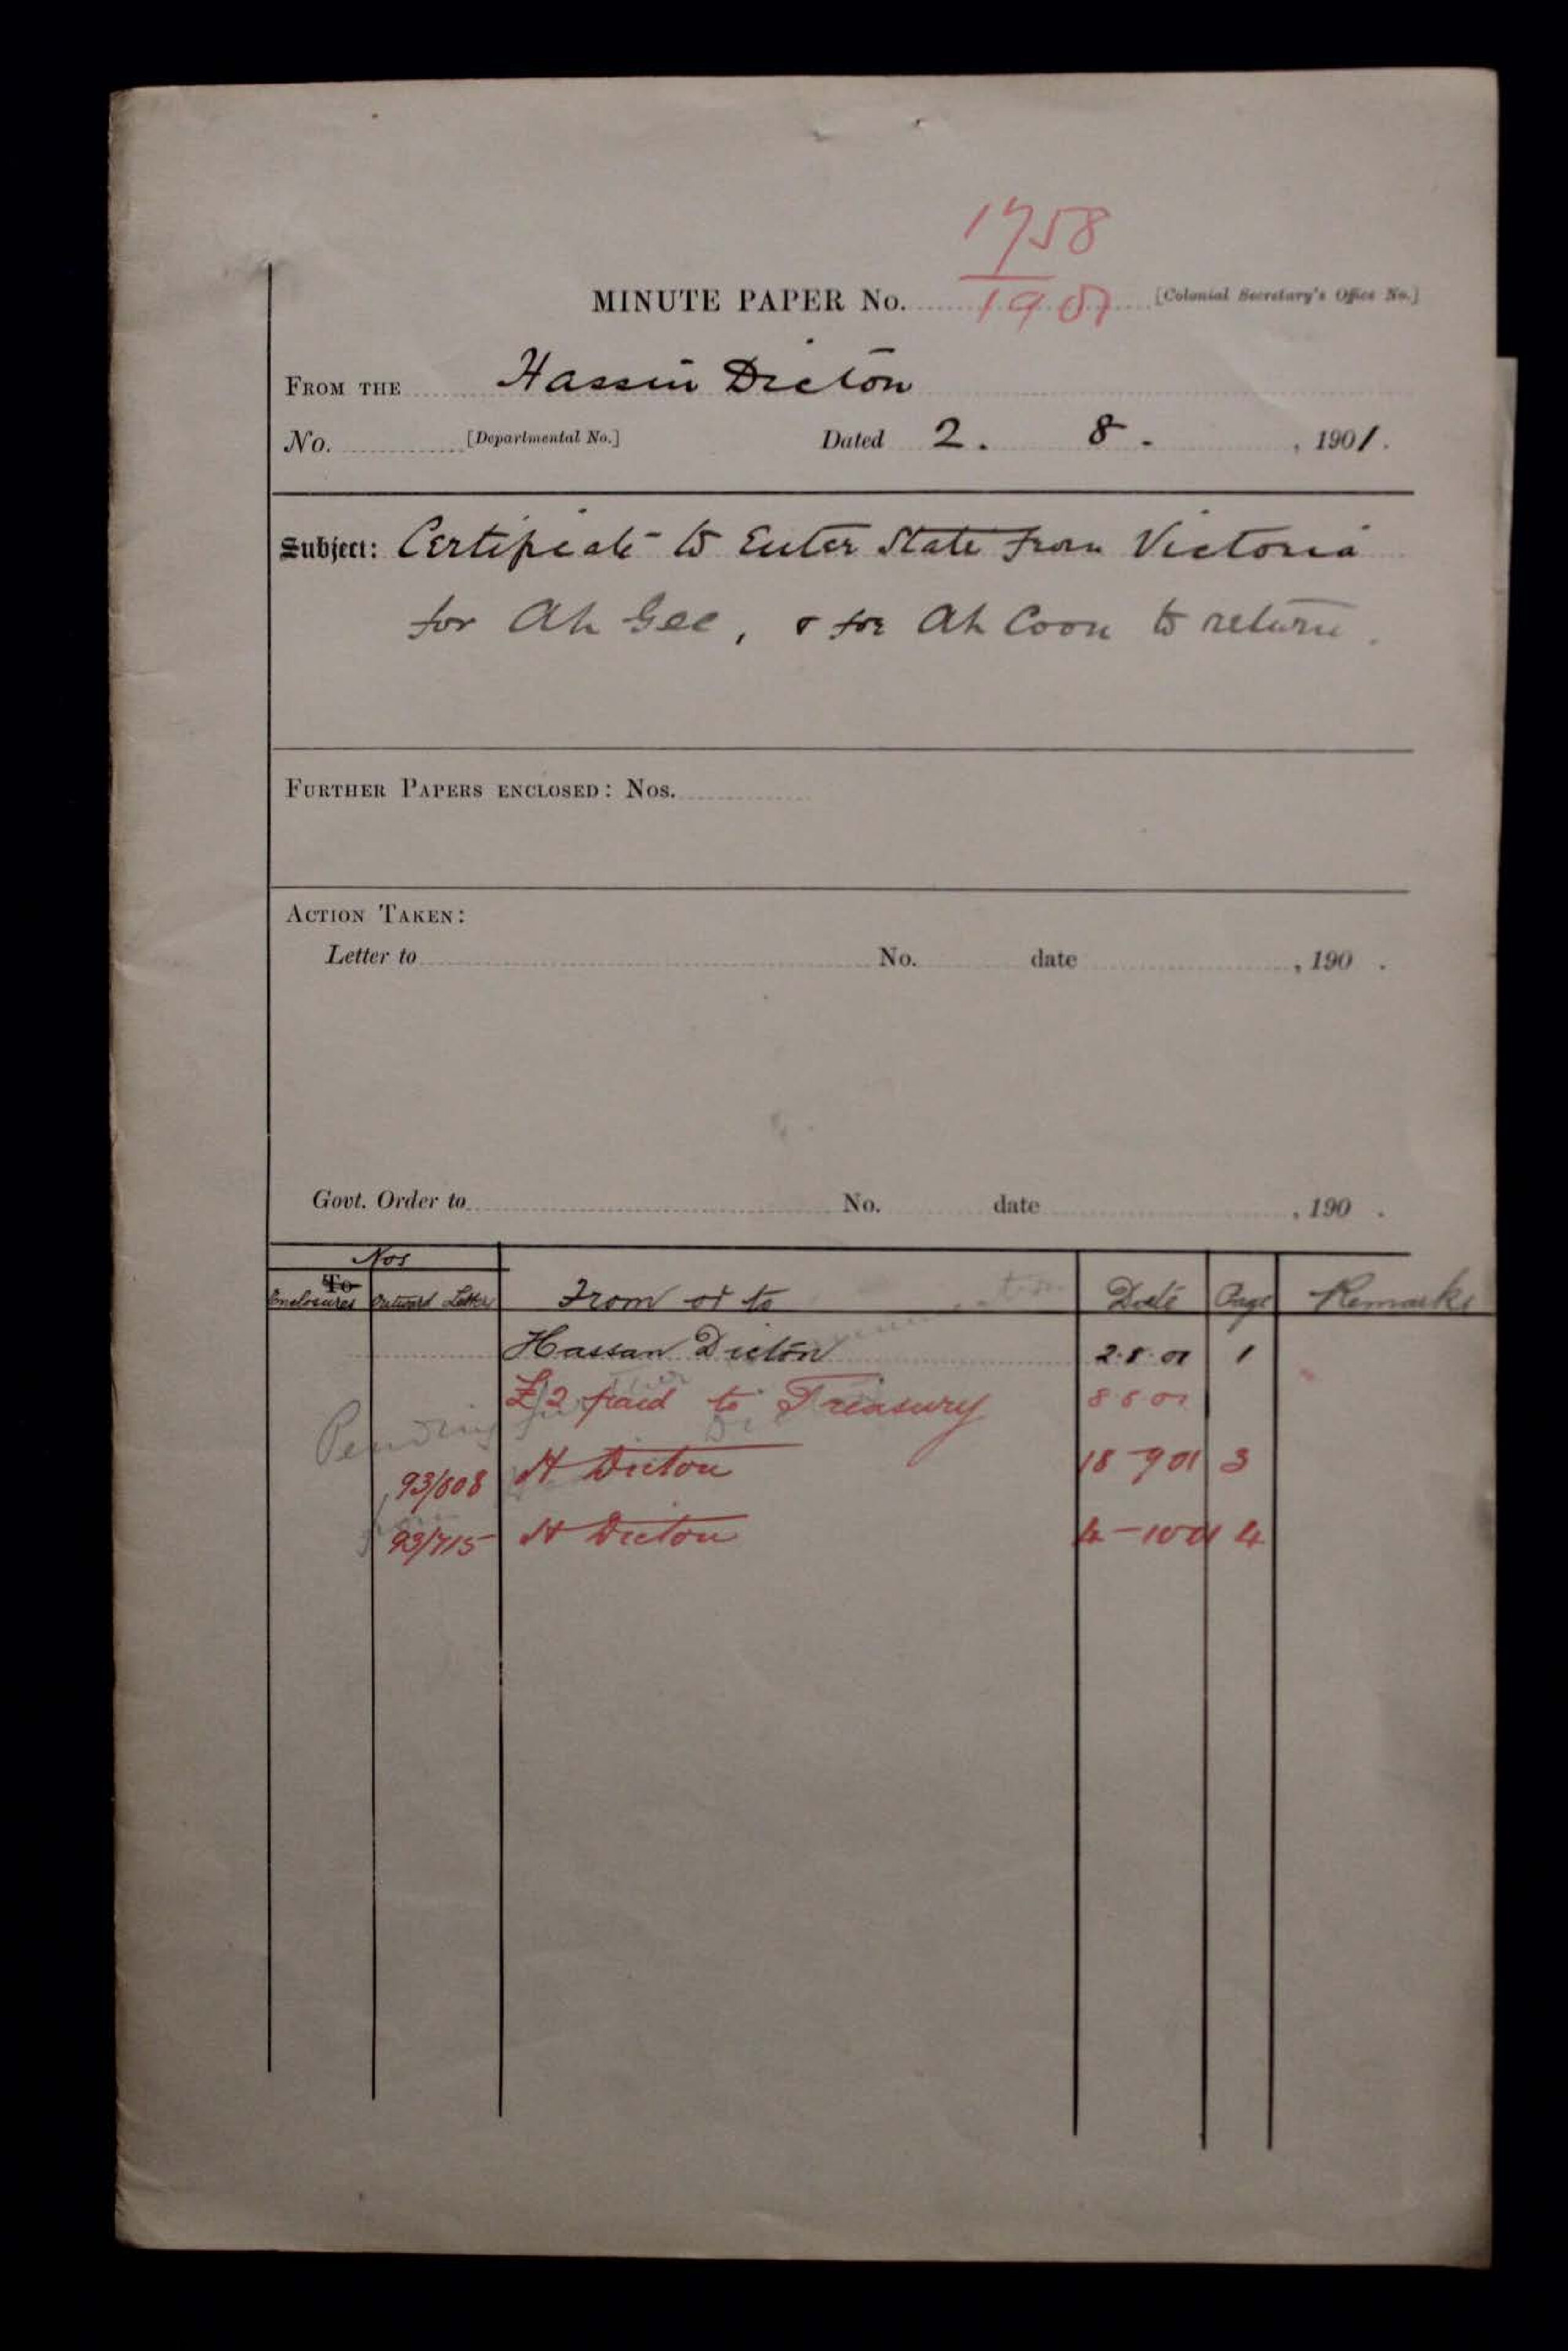 1758
MINUTE PAPER No. 1901 [Colonial Secretary's Office No.]
FROM THE Hassin Dicton
No. [Departmental No.] Dated 2. 8. , 1901.
Subject: Certificate to Enter State from Victoria
for Ah Gee, & for Ah Coon to return.
FURTHER PAPERS ENCLOSED: Nos.
ACTION TAKEN:
Letter to No. date , 190 .
Govt. Order to No. date , 190 .
Nos
To
Enclosures Outward Letter From or to Date Page Remarks
Hassan Dicton 2.8.01 1
£2 paid to Treasury 8 01
Pending
93/608 H Dicton 18-9 01 3
93/715 H Dicton 4-10 01 4